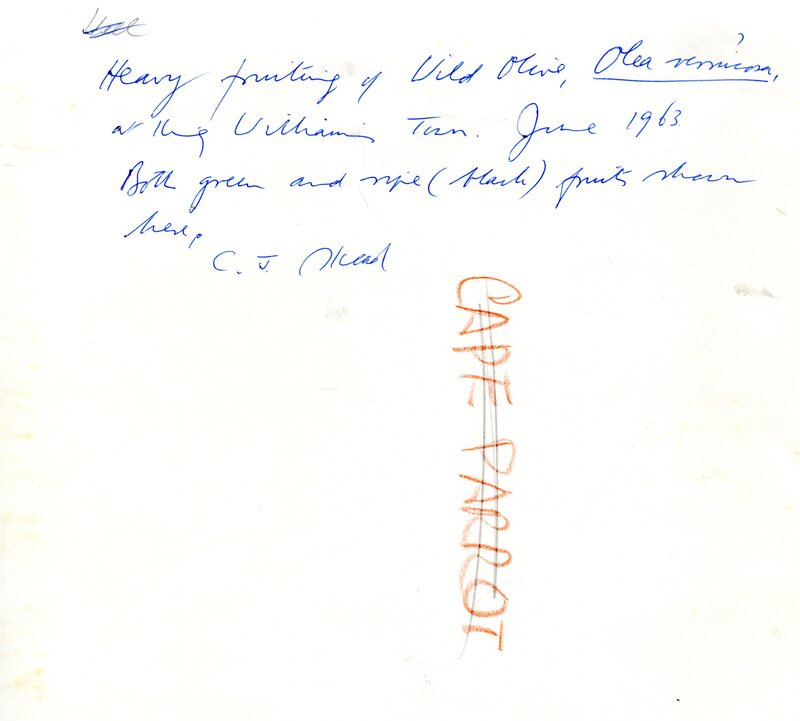 Heavy fruiting of Wild Olive, Olea verrucosa,
at King William's Town. June 1963.
Both green and ripe (black) fruits shown
here.
C. J. Skead
CAPE PARROT